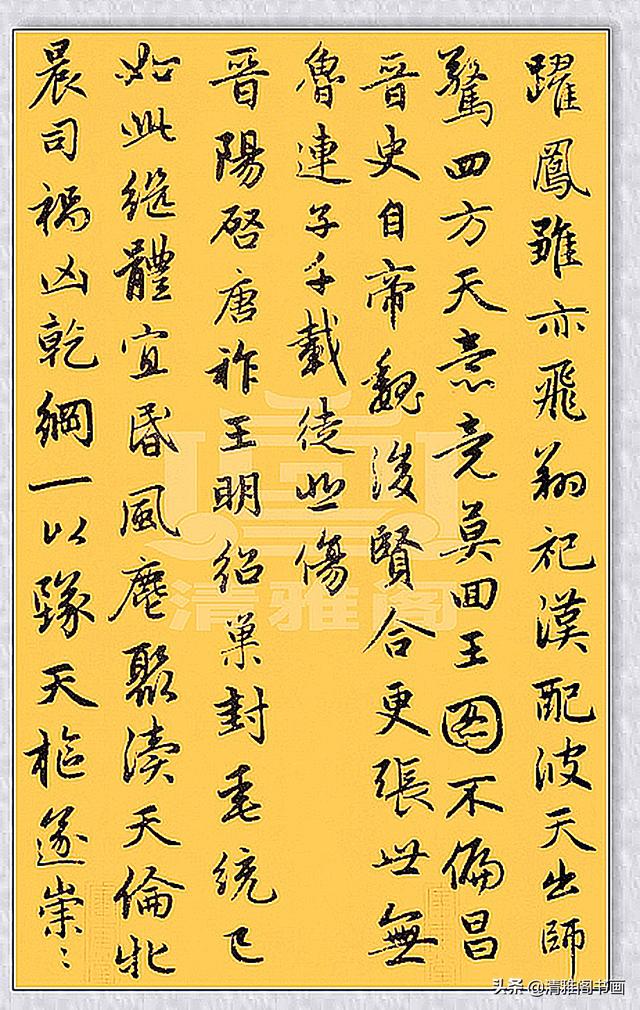 躍鳳雛亦飛翔祀漢配彼天出師
驚四方天意竟莫回王圖不偏昌
晉史自帝魏後賢合更張世無
魯連子千載徒悲傷
晉陽啓唐祚王明紹巢封垂統已
如此繼體宜昏風麀聚瀆天倫牝
晨司禍凶乾綱一以墜天樞遂崇々
清雅阁
头条 @清雅阁书画